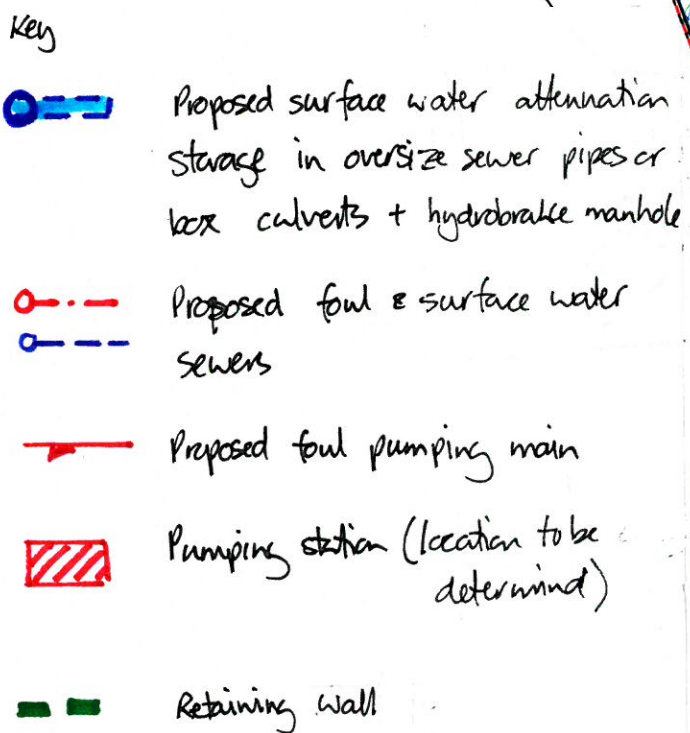 Key
Proposed surface water attennation
storage in oversize sewer pipes or
box culverts + hydrobrake manhole
Proposed foul & surface water
sewers
Proposed foul pumping main
Pumping station (location to be
determind)
Retaining wall